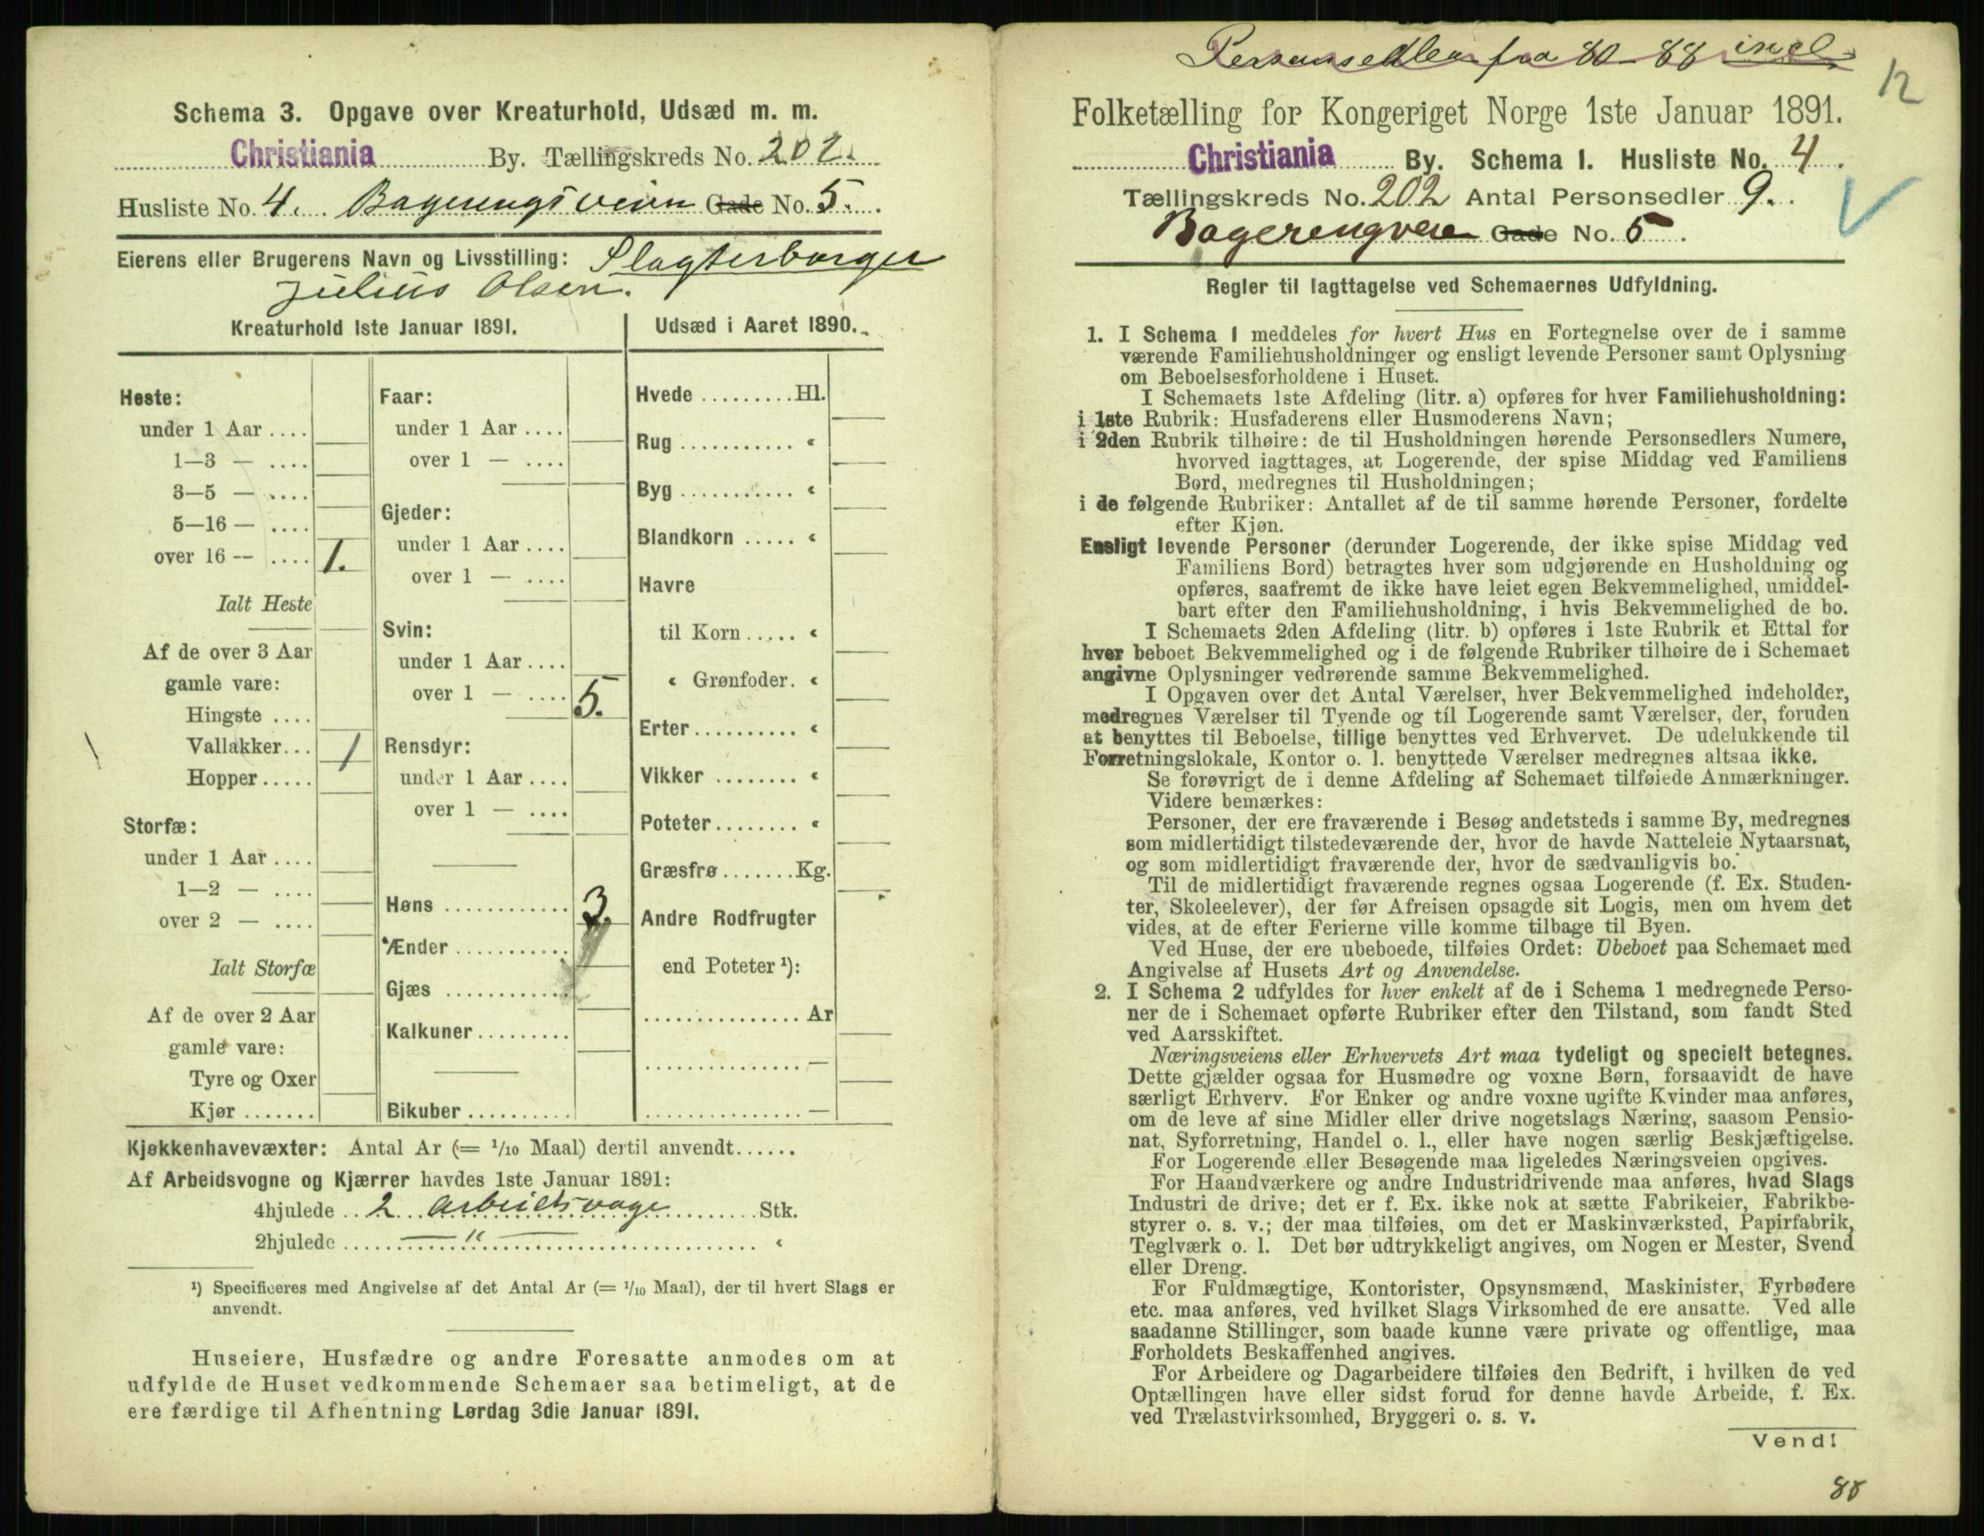 Schema 3. Opgave over Kreaturhold, Udsæd m. m.
Christiania By. Tællingskreds No. 202.
Husliste No. 4. Bagerengsveien Gade No. 5.
Eierens eller Brugerens Navn og Livsstilling: Slagterborger
Julius Olsen.
Kreaturhold 1ste Januar 1891.
Heste:
under 1 Aar ....
1—3 — ....
3—5 — ....
5—16 — ....
over 16 — .... 1.
Ialt Heste
Af de over 3 Aar
gamle vare:
Hingste ....
Vallakker... 1
Hopper ....
Storfæ:
under 1 Aar ....
1—2 — ....
over 2 — ....
Ialt Storfæ
Af de over 2 Aar
gamle vare:
Tyre og Oxer
Kjør .......
Faar:
under 1 Aar ....
over 1 — ....
Gjeder:
under 1 Aar ....
over 1 — ....
Svin:
under 1 Aar ....
over 1 — .... 5.
Rensdyr:
under 1 Aar ....
over 1 — ....
Høns ............ 3.
Ænder ...........
Gjæs ............
Kalkuner.........
Bikuber ..........
Udsæd i Aaret 1890.
Hvede .........Hl.
Rug ........... «
Byg ........... «
Blandkorn ..... «
Havre
til Korn ..... «
« Grønfoder. «
Erter.......... «
Vikker ........ «
Poteter........ «
Græsfrø .......Kg.
Andre Rodfrugter
end Poteter ¹):
............... Ar
............... —
............... —
Kjøkkenhavevæxter: Antal Ar (= 1/10 Maal) dertil anvendt......
Af Arbeidsvogne og Kjærrer havdes 1ste Januar 1891:
4hjulede .. 2 arbeidsvoge ........ Stk.
2hjulede .... — " — ........ «
¹) Specificeres med Angivelse af det Antal Ar (= 1/10 Maal), der til hvert Slags er
anvendt.
Huseiere, Husfædre og andre Foresatte anmodes om at
udfylde de Huset vedkommende Schemaer saa betimeligt, at de
ere færdige til Afhentning Lørdag 3die Januar 1891.
Personsedler fra 80–88 incl
12
Folketælling for Kongeriget Norge 1ste Januar 1891.
Christiania By. Schema 1. Husliste No. 4.
Tællingskreds No. 202 Antal Personsedler 9.
Bagerengveie Gade No. 5
Regler til Iagttagelse ved Schemaernes Udfyldning.
1. I Schema 1 meddeles for hvert Hus en Fortegnelse over de i samme
værende Familiehusholdninger og ensligt levende Personer samt Oplysning
om Beboelsesforholdene i Huset.
I Schemaets 1ste Afdeling (litr. a) opføres for hver Familiehusholdning:
i 1ste Rubrik: Husfaderens eller Husmoderens Navn;
i 2den Rubrik tilhøire: de til Husholdningen hørende Personsedlers Numere,
hvorved iagttages, at Logerende, der spise Middag ved Familiens
Bord, medregnes til Husholdningen;
i de følgende Rubriker: Antallet af de til samme hørende Personer, fordelte
efter Kjøn.
Ensligt levende Personer (derunder Logerende, der ikke spise Middag ved
Familiens Bord) betragtes hver som udgjørende en Husholdning og
opføres, saafremt de ikke have leiet egen Bekvemmelighed, umiddel-
bart efter den Familiehusholdning, i hvis Bekvemmelighed de bo.
I Schemaets 2den Afdeling (litr. b) opføres i 1ste Rubrik et Ettal for
hver beboet Bekvemmelighed og i de følgende Rubriker tilhøire de i Schemaet
angivne Oplysninger vedrørende samme Bekvemmelighed.
I Opgaven over det Antal Værelser, hver Bekvemmelighed indeholder,
medregnes Værelser til Tyende og til Logerende samt Værelser, der, foruden
at benyttes til Beboelse, tillige benyttes ved Erhvervet. De udelukkende til
Forretningslokale, Kontor o. l. benyttede Værelser medregnes altsaa ikke.
Se forøvrigt de i denne Afdeling af Schemaet tilføiede Anmærkninger.
Videre bemærkes:
Personer, der ere fraværende i Besøg andetsteds i samme By, medregnes
som midlertidigt tilstedeværende der, hvor de havde Natteleie Nytaarsnat,
og som midlertidigt fraværende der, hvor de sædvanligvis bo.
Til de midlertidigt fraværende regnes ogsaa Logerende (f. Ex. Studen-
ter, Skoleelever), der før Afreisen opsagde sit Logis, men om hvem det
vides, at de efter Ferierne ville komme tilbage til Byen.
Ved Huse, der ere ubeboede, tilføies Ordet: Ubeboet paa Schemaet med
Angivelse af Husets Art og Anvendelse.
2. I Schema 2 udfyldes for hver enkelt af de i Schema 1 medregnede Perso-
ner de i Schemaet opførte Rubriker efter den Tilstand, som fandt Sted
ved Aarsskiftet.
Næringsveiens eller Erhvervets Art maa tydeligt og specielt betegnes.
Dette gjælder ogsaa for Husmødre og voxne Børn, forsaavidt de have
særligt Erhverv. For Enker og andre voxne ugifte Kvinder maa anføres,
om de leve af sine Midler eller drive nogetslags Næring, saasom Pensio-
nat, Syforretning, Handel o. l., eller have nogen særlig Beskjæftigelse.
For Logerende eller Besøgende maa ligeledes Næringsveien opgives.
For Haandværkere og andre Industridrivende maa anføres, hvad Slags
Industri de drive; det er f. Ex. ikke nok at sætte Fabrikeier, Fabrikbe-
styrer o. s. v.; der maa tilføies, om det er Maskinværksted, Papirfabrik,
Teglværk o. l. Det bør udtrykkeligt angives, om Nogen er Mester, Svend
eller Dreng.
For Fuldmægtige, Kontorister, Opsynsmænd, Maskinister, Fyrbødere
etc. maa anføres, ved hvilket Slags Virksomhed de ere ansatte. Ved alle
saadanne Stillinger, som baade kunne være private og offentlige, maa
Forholdets Beskaffenhed angives.
For Arbeidere og Dagarbeidere tilføies den Bedrift, i hvilken de ved
Optællingen have eller sidst forud for denne havde Arbeide, f. Ex.
ved Trælastvirksomhed, Bryggeri o. s. v.
Vend!
88